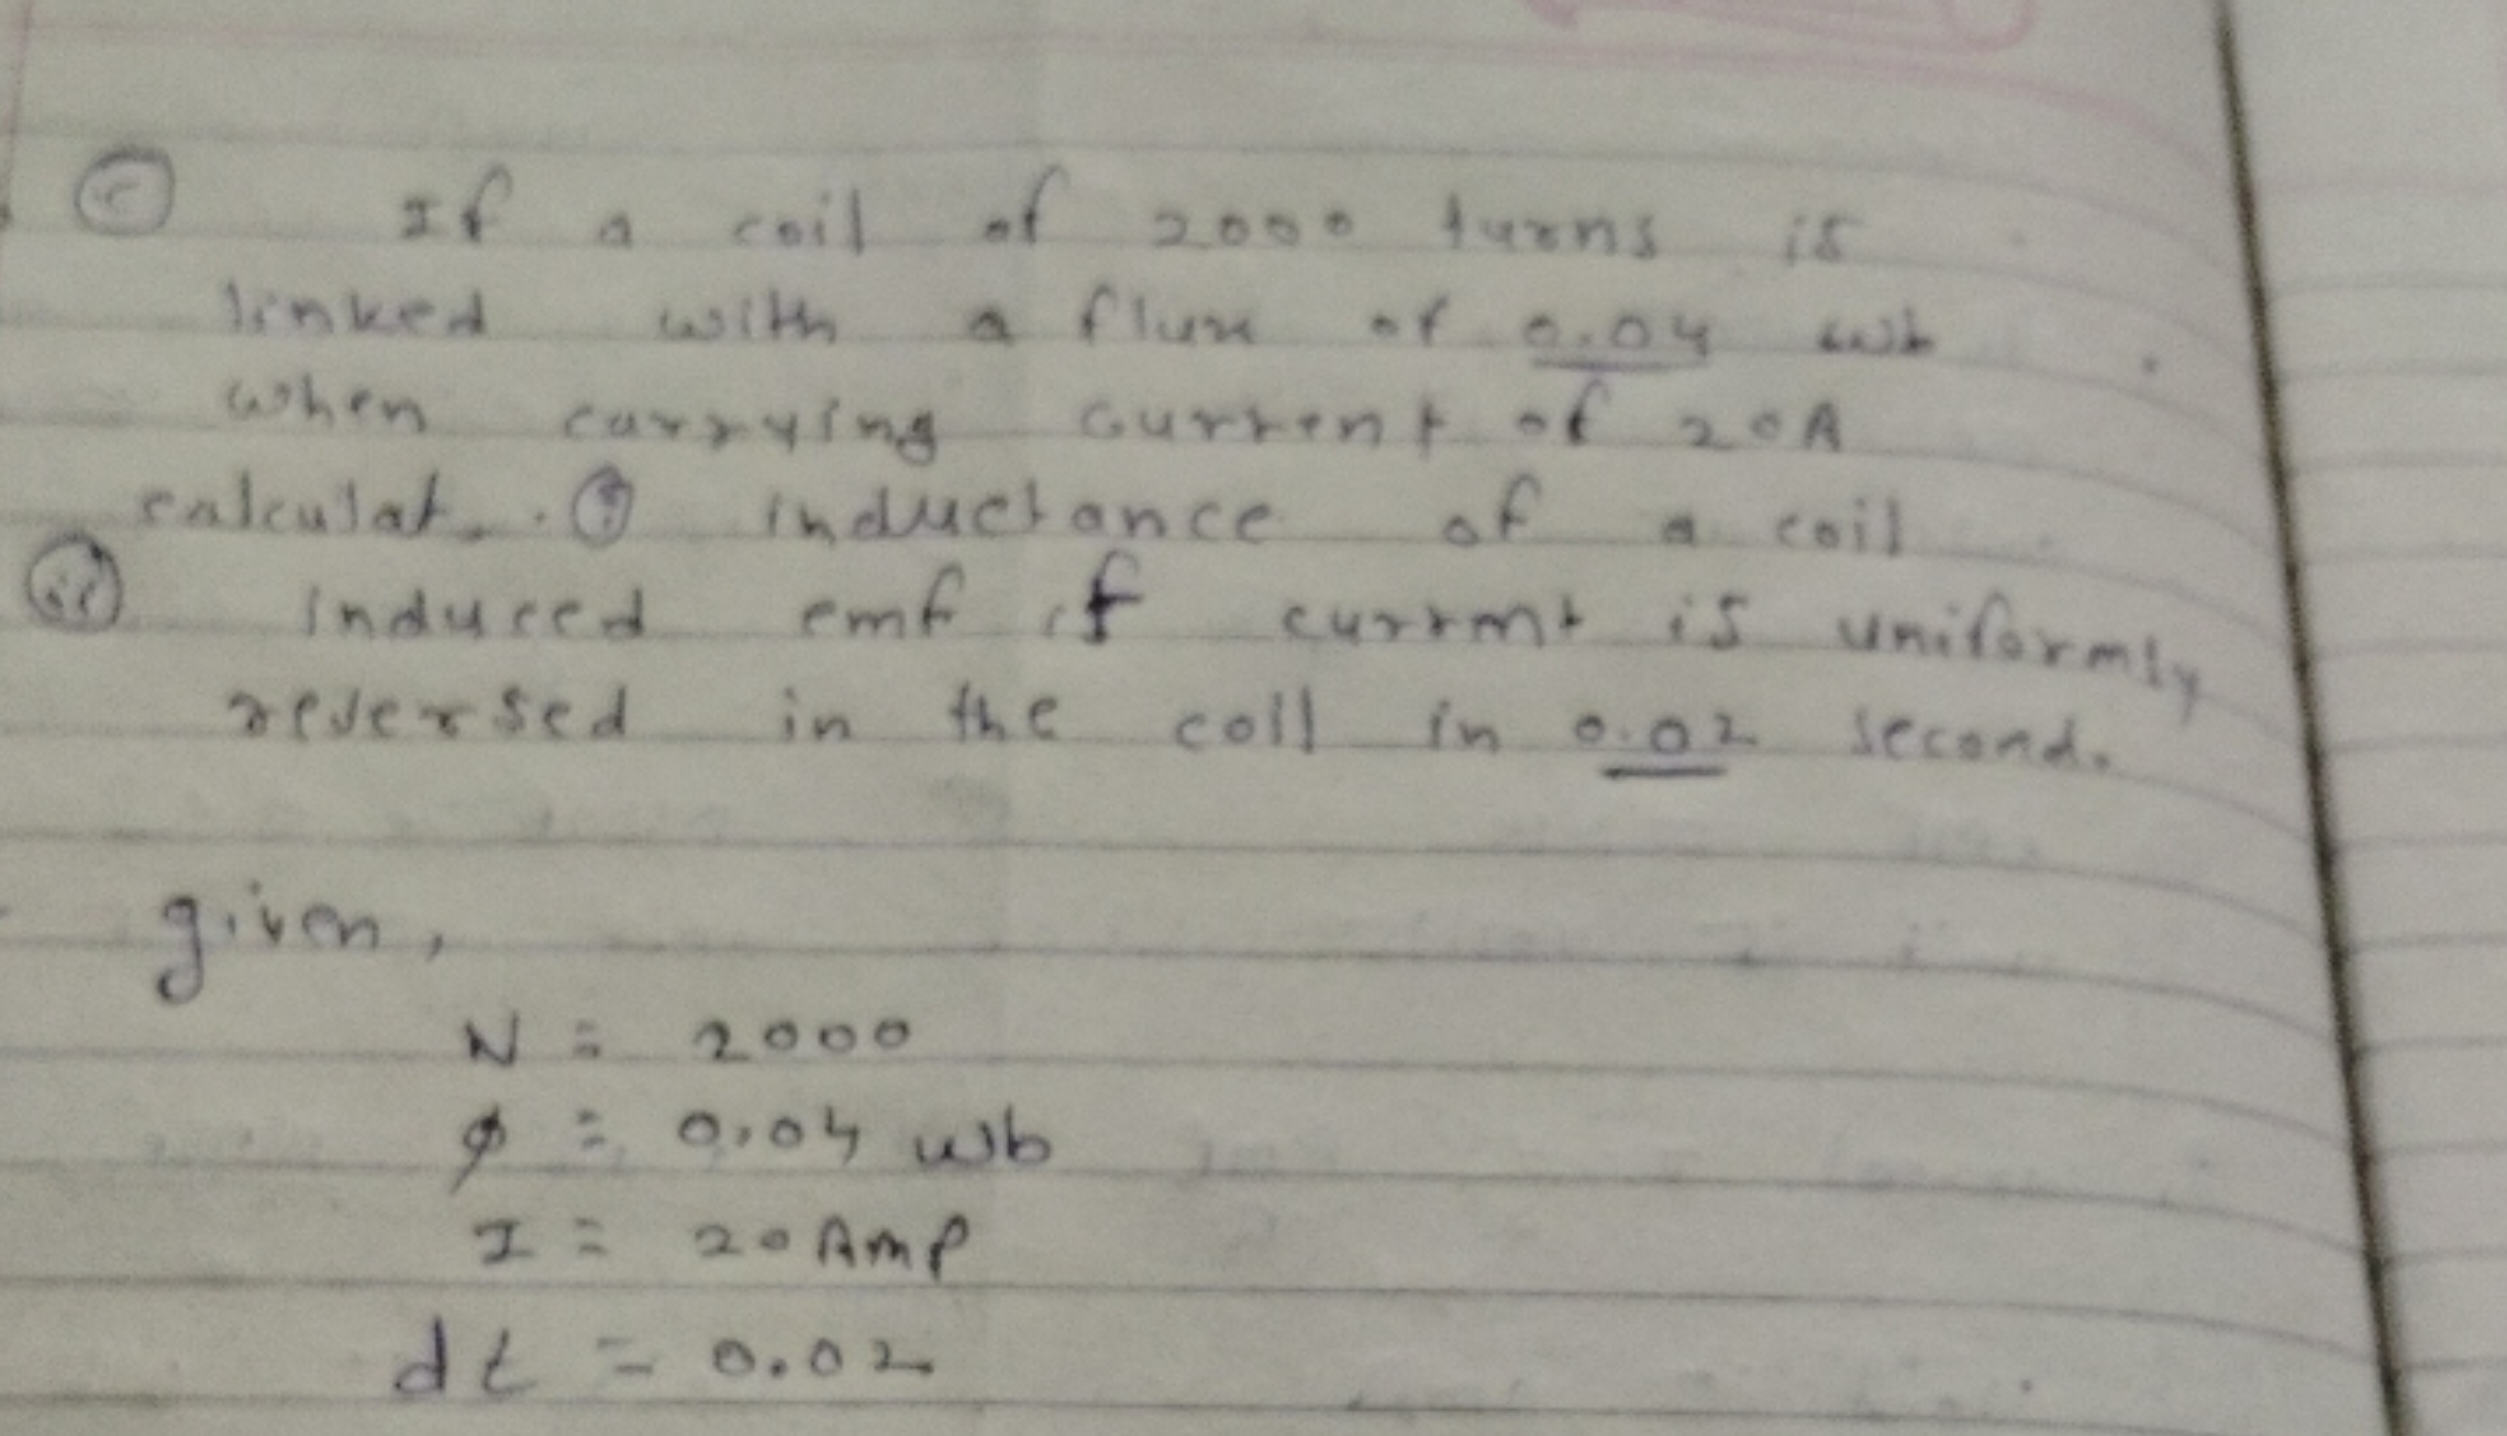 © If a coil of 2000 turns is
linked with a flux of 0.04 wb
when carrying current of 20A
calculat. (i) inductance of a coil
(ii) induced emf if current is uniformly
reversed in the coil in 0.02 second.
given,
N = 2000
ϕ = 0.04 wb
I = 20 Amp
dt = 0.02